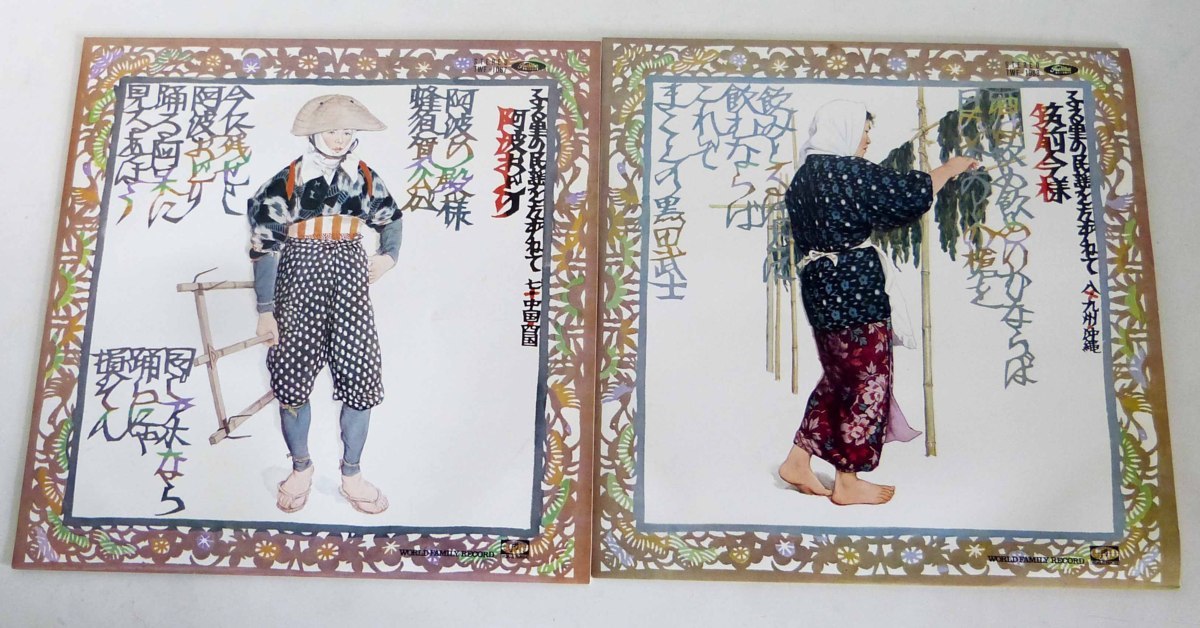 STEREO
ふる里の民謡をたずねて 七・中国・四国
阿波おどり
阿波の殿様
蜂須賀公が
今に残せし
阿波おどり
踊る阿呆に
見るあほう
同じ阿呆なら
踊らにゃ
損そん
WORLD FAMILY RECORD
STEREO
ふる里の民謡をたずねて 八・九州・沖縄
筑前今様
飲め飲めのむならば
槍を
飲みとる
飲むならば
これぞ
まことの黒田武士
WORLD FAMILY RECORD